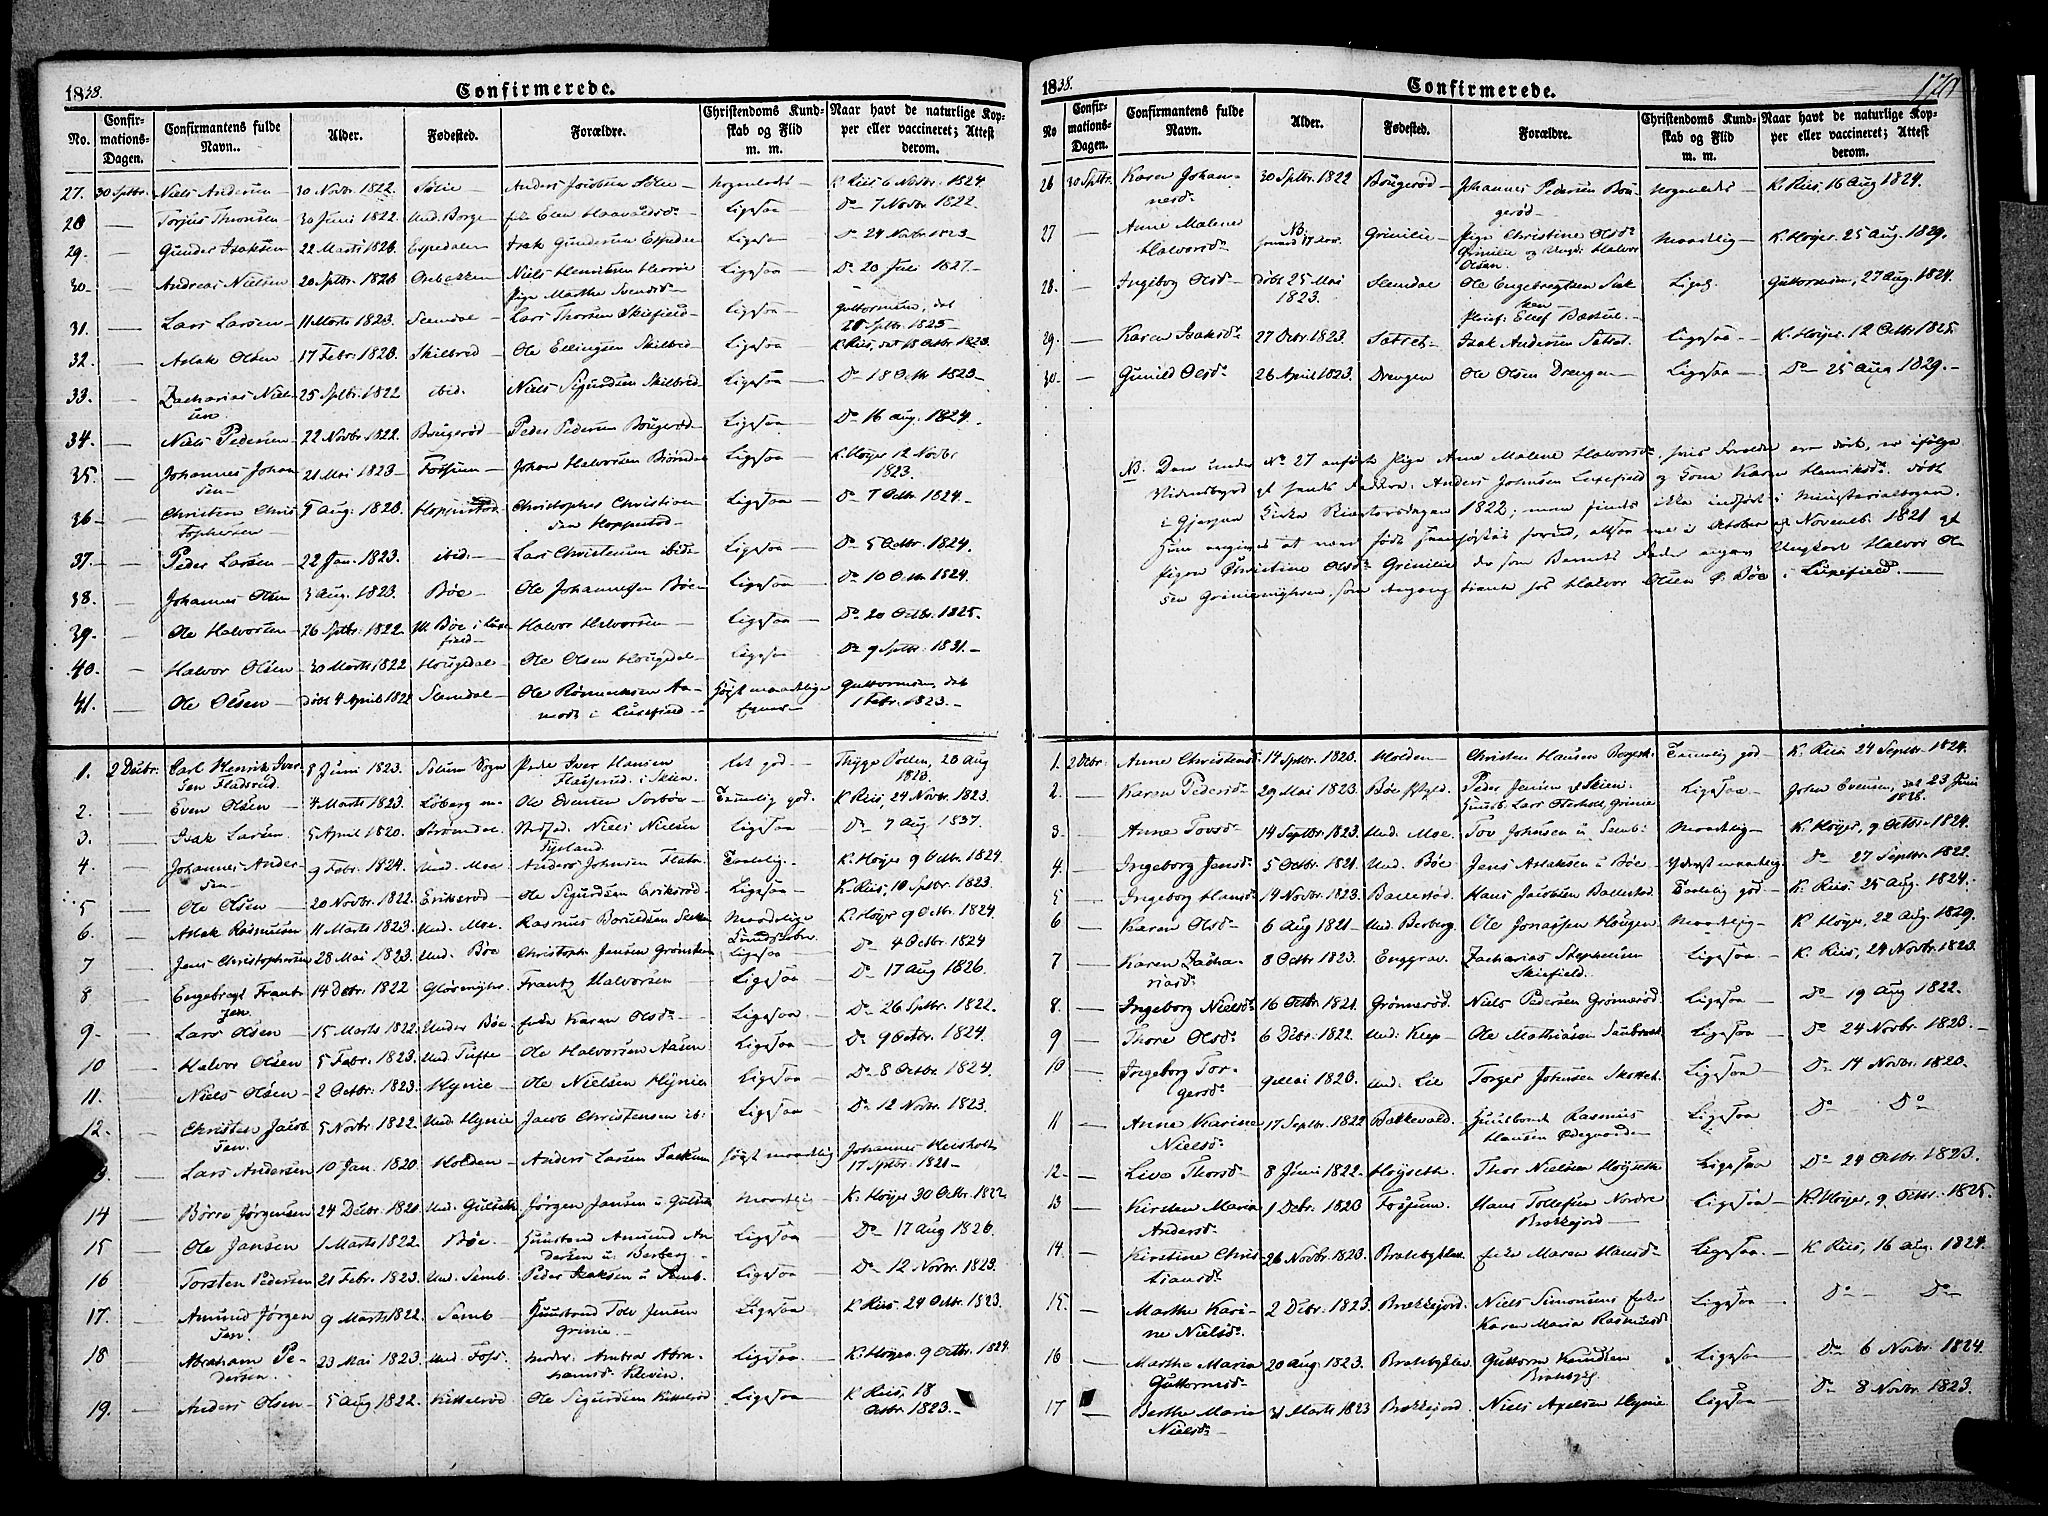 1838.
Confirmerede.
No.
Confir-
mations-
Dagen.
Confirmantens fulde
Navn.
Alder.
Fødested.
Forældre.
Christendoms Kund-
skab og Flid
m. m.
Naar havt de naturlige Kop-
per eller vaccineret; Attest
derom.
27. 30 Septbr. Niels Andersen 30 Novbr. 1822. Sølie Anders Jacobsen Sølie nogenledes K. Riis 6 Novbr. 1824.
28 Torjus Thronsen 30 Juni 1822. Und. Borge Elen Haavaldsd. Ligesaa Do 7 Novbr. 1822.
29. Gunder Isaksen 22 Marts 1823 Espedalen Isak Gundersen Ligesaa Do 24 Novbr. 1823
30. Andreas Nielsen 20 Septbr. 1823 Niels Henriksen
Pige Marthe Svendsd. Ligesaa Do 20 Juli 1827.
31. Lars Larsen 11 Marts 1823. Slemdal Lars Thorsen Ligesaa Guttormsen, det
Septbr. 1825
32. Aslak Olsen 17 Febr. 1823. Skilbred Ole Ellingsen Skilbred Ligesaa K. Riis, det 18 Octbr. 1823.
33. Zacharias Niel-
sen 25 Septbr. 1822 ibid. Niels Sigurdsen Skilbred Ligesaa Do 18 Octbr 1823
34. Niels Pedersen 22 Novbr. 1822. Bougerød Peder Pedersen Bougerød Ligesaa Do 16 Aug. 1824.
35. Johannes Johan-
sen 21 Mai 1823 Fossum Johan Halvorsen Ligesaa K. Høyer 12 Novbr
1823.
36 Christian Chris-
tophersen Aug. 1823. Hoppestad Christopher Christian-
sen Hoppestad Ligesaa Do 7 Octbr. 1824
37. Peder Larsen 22 Jan. 1823. ibid. Lars Christensen ibid. Ligesaa Do 5 Octbr. 1824.
38. Johannes Olsen 3 Aug. 1823. Bøe Ole Johannesen Bøe Ligesaa Do 10 Octbr 1824.
39. Ole Halvorsen 26 Septbr. 1822. Bøe i Luxe-
field Halvor Halvorsen Ligesaa Do 20 Octbr. 1825.
40. Halvor Olsen 30 Marts 1822 Hougedal Ole Olsen Hougedal Ligesaa Do 9 Septbr. 1831.
41. Ole Olsen døbt 4 April 1822 Slemdal Ole Aa-
modt i Luxefield høist maadelige
Evner Guttormsen, det
1 Febr. 1823.
1. 2 Decbr. Carl Henrik Iver-
sen Fladsrud 8 Juni 1823. Solum Sogn Iver Hansen
i Skien. Ret god Thyge Potten, 20 Aug
1823.
2. Even Olsen 4 Marts 1823. Løberg Ole Evensen Temmelig god. K. Riis, 24 Novbr. 1823.
3. Isak Larsen 5 April 1820. Strømdal Niels Nielsen Ligesaa Do 7 Aug. 1837.
4. Johannes Ander-
sen 9 Febr. 1824. Und. Moe Anders Johnsen K. Høyer 9 Octbr. 1824.
5 Ole Olsen 20 Novbr. 1822. Eriksrød Ole Sigurdsen Eriksrød Ligesaa K. Riis, 10 Septbr. 1823.
6. Aslak Rasmussen 11 Marts 1823. Und. Moe. Rasmus Maadelige
Kundskaber K. Høyer 9 Octbr. 1824.
7 Jens Christophersen 28 Mai 1823. Und. Bøe Christoph. Jensen Grønsten Ligesaa Do 4 Octbr. 1824
8 Engebregt Frants-
sen. 14 Decbr. 1822 Frantz Halvorsen Ligesaa Do 17 Aug 1826.
9. Lars Olsen 15 Marts 1822. Under Bøe Karen Olsd. Ligesaa Do 26 Septbr. 1822.
10 Halvor Olsen 5 Febr. 1823. Und Tufte Ole Halvorsen Aasen Ligesaa Do 9 Octbr. 1824.
11. Niels Olsen 2 Octbr. 1823. Hynie Ole Nielsen Hynie Ligesaa Do 8 Octbr. 1824.
12. Christen Jacob-
sen. 5 Novbr. 1822. Und. Hynie Jacob Christensen ib: Ligesaa Do 12 Novbr. 1823.
13. Lars Andersen 10 Jan. 1820. Holden Anders Larsen høist maadelig Johannes
17 Septbr. 1821
14 Børre Jørgensen 24 Decbr. 1821 Und. Gulseth Jørgen Jansen u. Gulseth Maadelig K. Høyer 30 Octbr. 1822
15 Ole Jansen 1 Marts 1822. Bøe. Huusbond Amund An-
dersen u. Berberg. Ligesaa Do 17 Aug 1826.
16 Torsten Pedersen 21 Febr. 1823. Und. Semb. Peder Isaksen u Semb. Ligesaa Do 12 Novbr. 1823.
17. Amund Jørgen-
sen 9 Marts 1822. Semb Huusbond Tolv Jensen
Grinie. Ligesaa K Riis 24 Octbr. 1823.
18 Abraham Pe-
dersen 23 Mai 1823. Und. Foss. moder: Abra-
hamsd. Kleven. Ligesaa K. Høyer 9 Octbr. 1824
19. Anders Olsen 5 Aug 1822. Kittelrød Ole Sigurdsen Kittelrød Ligesaa K Riis, 18
Octbr. 1823.
1838.
Confirmerede.
170
No
Confir-
mations-
Dagen.
Confirmantens fulde
Navn.
Alder.
Fødested.
Forældre.
Christendoms Kund-
skab og Flid
m. m.
Naar havt de naturlige Kop-
per eller vaccineret; Attest
derom.
26 30 Septbr. Karen Johan-
nesd. 30 Septbr. 1822 Bougerød Johannes Pedersen Bou-
gerød nogenledes K. Riis, 16 Aug 1824.
27 Anne Malene
Halvorsd. NB. Grinilie Pige Christine Olsd.
Grinilie og Ungk. Halvor
Olsen. Maadelig K. Høyer 25 Aug. 1829.
28. Ingeborg Olsd. døbt 25 Mai
1823. Slemdal Ole Engebregtsen
Pleief. Elef Ligesaa Guttormsen, 27 Aug. 1824.
29. Karen Isaksd. 27 Octbr. 1823. Sætret Isak Andersen Sætret Ligesaa K. Høyer 12 Octbr 1825.
30. Gunild Olsd. 26 April 1823. Drengen Ole Olsen Drengen Ligesaa Do 25 Aug 1829.
NB. Den under No 27 anførte Pige Anne Malene Halvorsd., hvis Forældre ere døde, er ifølge
Vidnesbyrd af hendes Faddere: Anders Johnsen Luxefield og Tone Karen Henriksd. døbt
i Gjerpen Kirke 1822; men findes ikke indført i Ministerialbogen.
Hun angives at være født forud, altsaa i October og Novemb. 1821 af
Pigen Christine Olsd. Grinilie der som Barnets Fader angav Ungkarl Halvor Ol-
sen som dengang tiente hos Halvor Olsen Bøe i Luxefield.
1. 2 Decbr. Anne Christensd. 14 Septbr. 1823. Holden Christen Hansen Temmelig god K. Riis 24 Septbr. 1824.
2. Karen Pedersd. 29 Mai 1823. Bøe Peder Jensen af Skien.
Huusb. Lars Grinie Ligesaa John Evensen, det 23 Juni
1838.
3 Anne Tovsd. 14 Septbr. 1823. Und. Moe. Tov Johnsen u Semb: Maadelig K. Høyer, 9 Octbr. 1824.
4 Ingeborg Jensd. 5 Octbr. 1821. Und. Bøe Jens Aslaksen u Bøe yderst maadelig Do 27 Septbr. 1822.
5 Ingeborg Hansd. 14 Novbr. 1823. Ballestad Hans Jacobsen Ballestad god K. Riis, 25 Aug. 1824.
6 Karen Olsd. 6 Aug 1821 Und Berberg. Ole Jonassen Hougen Maadelig K Høyer, 22 Aug. 1829.
7 Karen Zacha-
riasd. 8 Octbr 1823. Enggrav. Zacharias Stephensen Ligesaa K. Riis, 24 Novbr. 1823.
8. Ingeborg Nielsd. 16 Octbr. 1821. Grønnerød. Niels Pedersen Grønnerød. Ligesaa Do 19 Aug 1822.
9 Thore Olsd. 6 Decbr. 1822. Und: Kiep Ole Mathiasen Ligesaa Do 24 Novbr. 1823.
10 Ingeborg Tor-
gersd. 9 Mai 1823. Und. Lie Torger Johnsen Ligesaa Do 14 Novbr. 1823.
11 Anne Karine
Nielsd. 17 Septbr. 1822 Bakkevald. Huusbond Rasmus
Hansen Ødegaarden Ligesaa Do Do
12. Live Thorsd. 8 Juni 1822. Høyseth Thor Nielsen Høyseth Ligesaa Do 24 Octbr. 1823.
13 Kirsten Maria
Andersd. 1 Decbr. 1823 Fossum. Hans Tollefsen Nordre
Brækkejord Ligesaa K. Høyer, 9 Octbr. 1825.
14. Kirstine Chris-
tiansd. 26 Novbr. 1823. Maren Hansd. Ligesaa K Riis, 16 Aug. 1824.
15. Marthe Kari-
ne Nielsd. 2 Decbr. 1823. Brækkejord. Niels Simonsens
Karen Maria Rasmusd. Ligesaa Do Do
16 Marthe Maria
Guttormsd. 20 Aug. 1823. Guttorm Knudsen Ligesaa Do 6 Novbr. 1824.
17 Berthe Maria
Nielsd. 31 Marts 1823 Brækkejord. Niels Axelsen Hynie Ligesaa Do 8 Novbr. 1823.